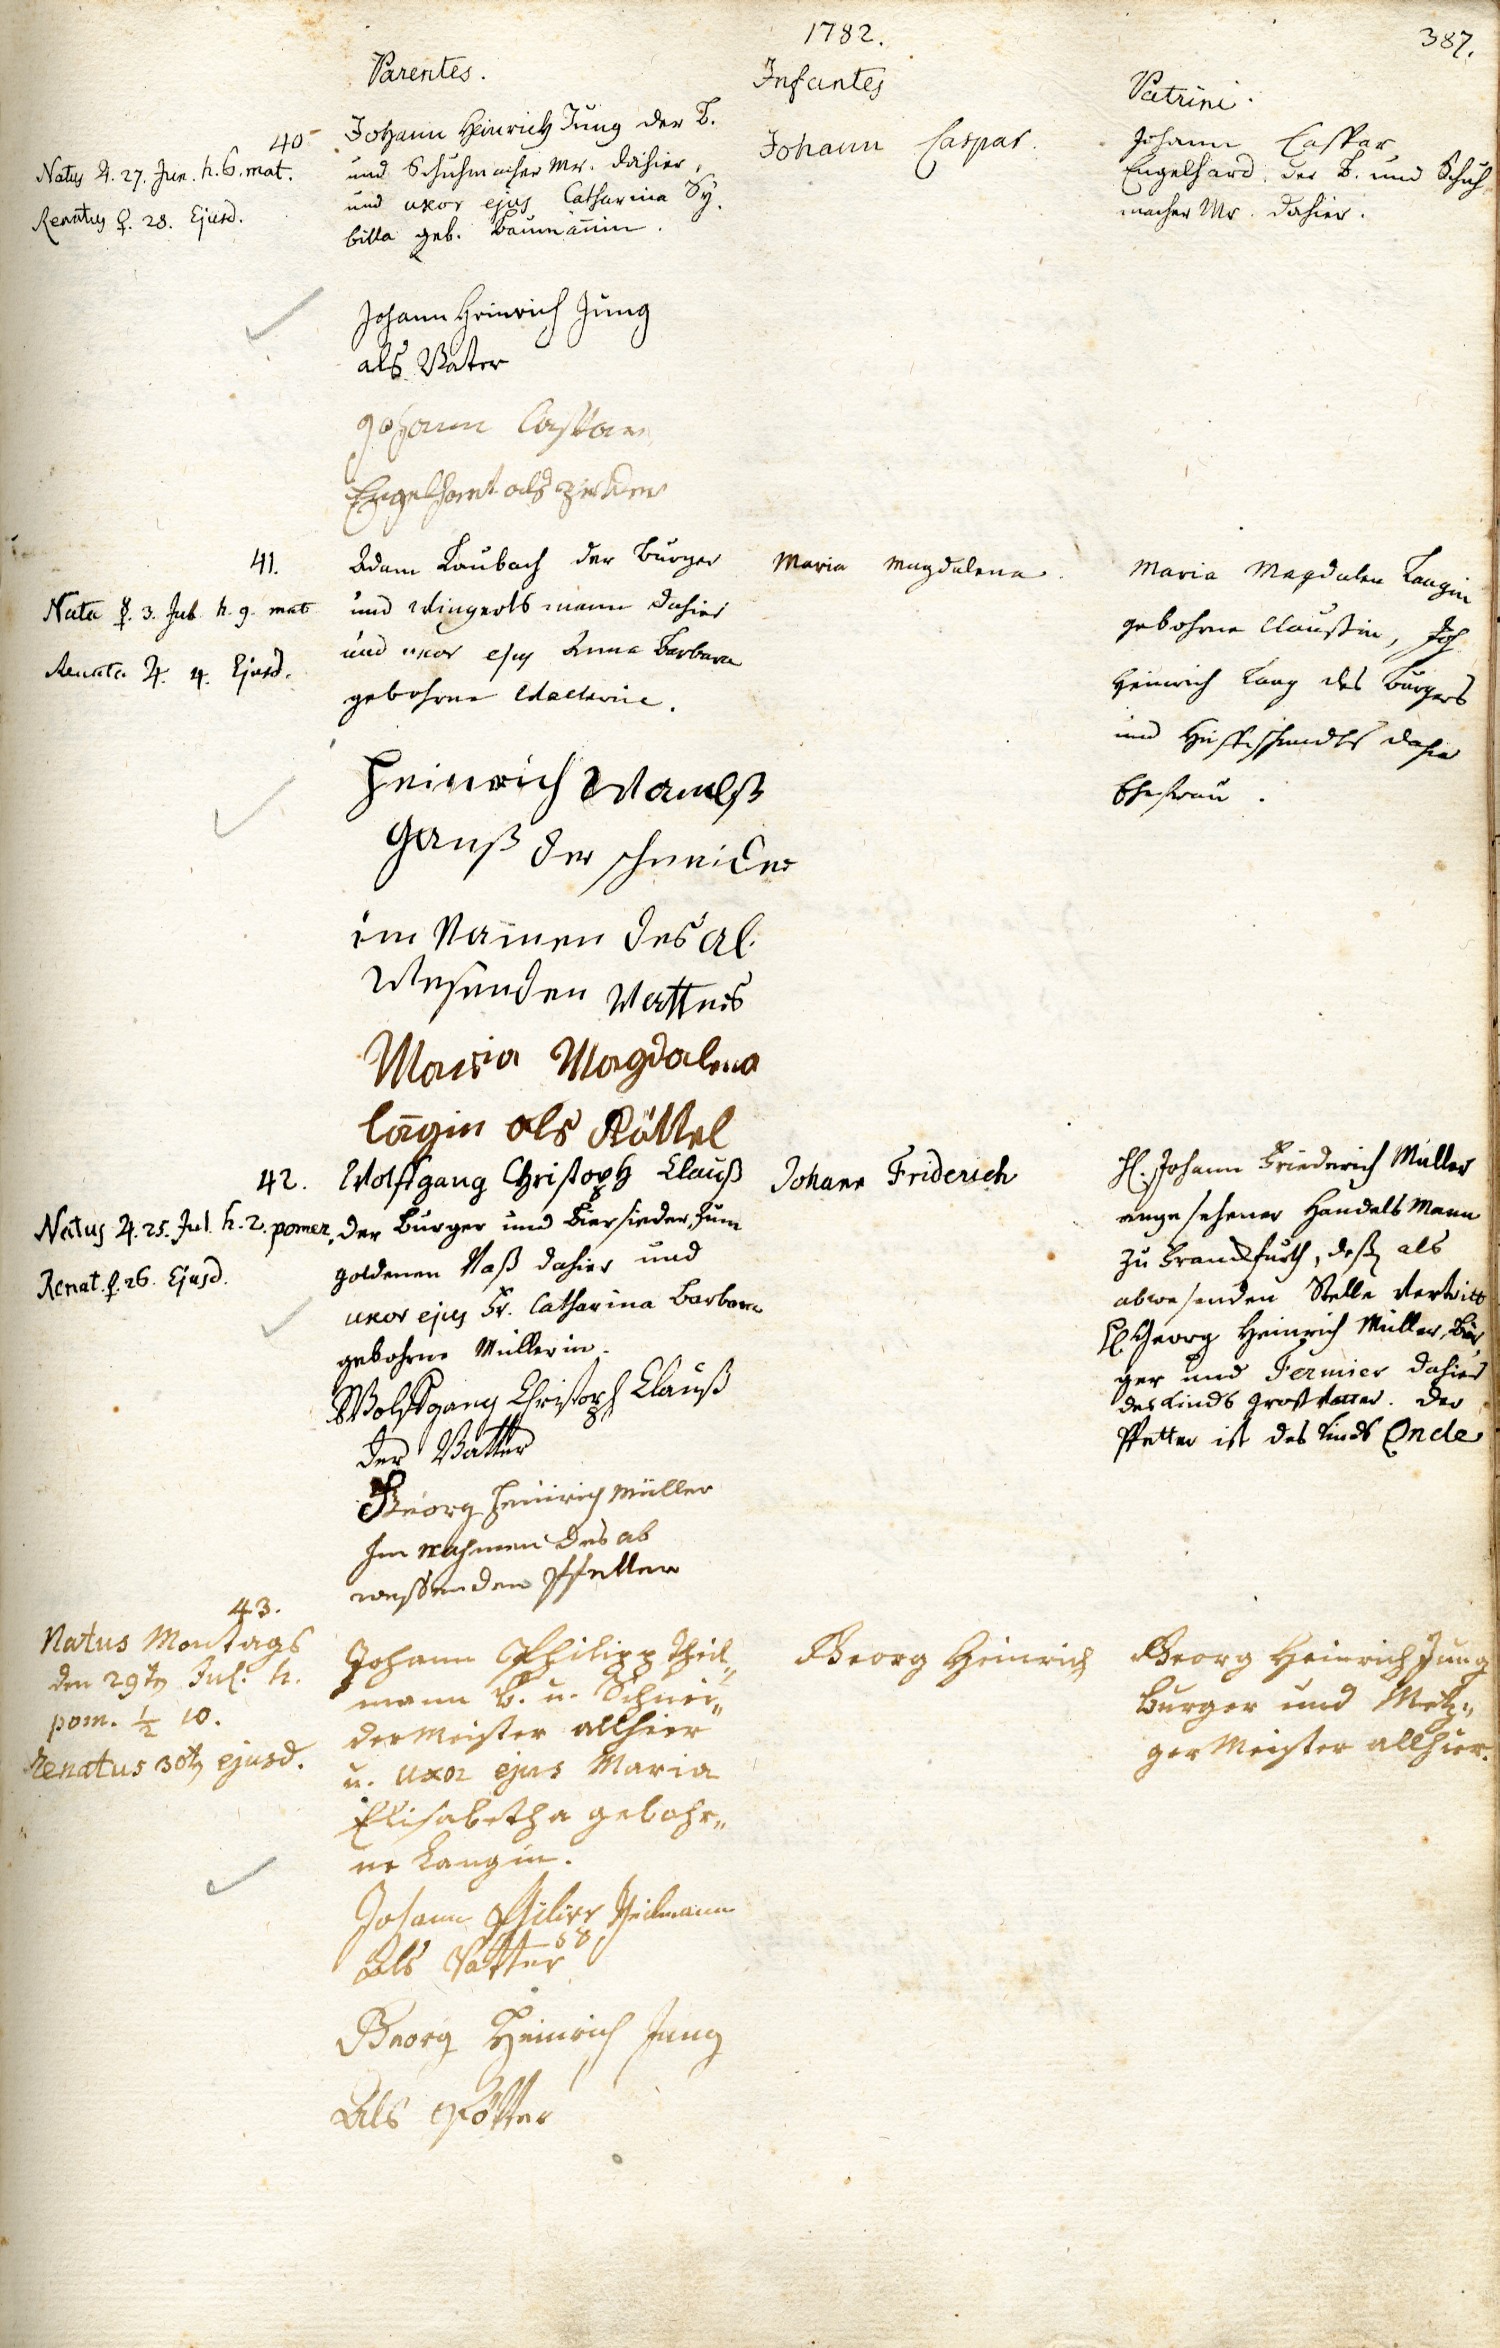 1782.
387.
Parentes.
Infantes
Patrini.
40
Natus ♃. 27. Jun. h. 6. mat.
Renatus ♀. 28. Ejusd.
Johann Heinrich Jung der B.
und Schuhmacher Mr. dahier,
und uxor ejus Catharina Sy-
billa geb. Baumännin.
Johann Caspar.
Johann Caspar
Engelhard, der B. und Schuh
macher Mr. dahier.
Johann Heinrich Jung
als Vatter
Johann Caspar
Engelhart als
41.
Nata ☿. 3. Jul. h. 9. mat
Renata ♃. 4. Ejusd.
Adam Laubach der Burger
und Wingertsmann dahier
und uxor ejus Anna Barbara
gebohrne
Maria Magdalena.
Maria Magdalen Langin
gebohrne Claußin, Joh
Heinrich Lang des Burgers
und dahier
Ehefrau.
Heinrich
Gauß der schneider
im Namen des ab
Wesenden Vatters
Maria Magdalena
lāgin als Göttel
42.
Natus ♃. 25. Jul. h. 2. pomer.
Renat. ♀. 26. Ejusd.
Wolffgang Christoph Clauß
der Burger und Biersieder, zum
goldenen Faß dahier und
uxor ejus Fr. Catharina Barbara
gebohrne Müllerin.
Johann Friderich
H. Johann Friederich Müller
angesehener Handels Mann
zu Franckfurth, deßen als
abwesenden Stelle vertritt
H. Georg Heinrich Müller, Bür
ger und Fermier dahier
des Kinds Großvatter. Der
Pfetter ist des Kinds Oncle
Wolffgang Christoph Clauß
der Vatter
Georg Heinrich Müller
Im nahmen des ab
wessenden Pfetter
43.
Natus Montags
den 29ten Jul. h.
pom. ½ 10.
Renatus 30ten ejusd.
Johann Philipp Theil„
mann B. u. Schnei„
der Meister allhier
u. uxor ejus Maria
Elisabetha gebohr„
ne Langin.
Georg Heinrich
Georg Heinrich Jung
Burger und Metz„
ger Meister allhier.
Johann Philipp Theilmann
Als Vatter
Georg Heinrich Jung
Als Pfötter